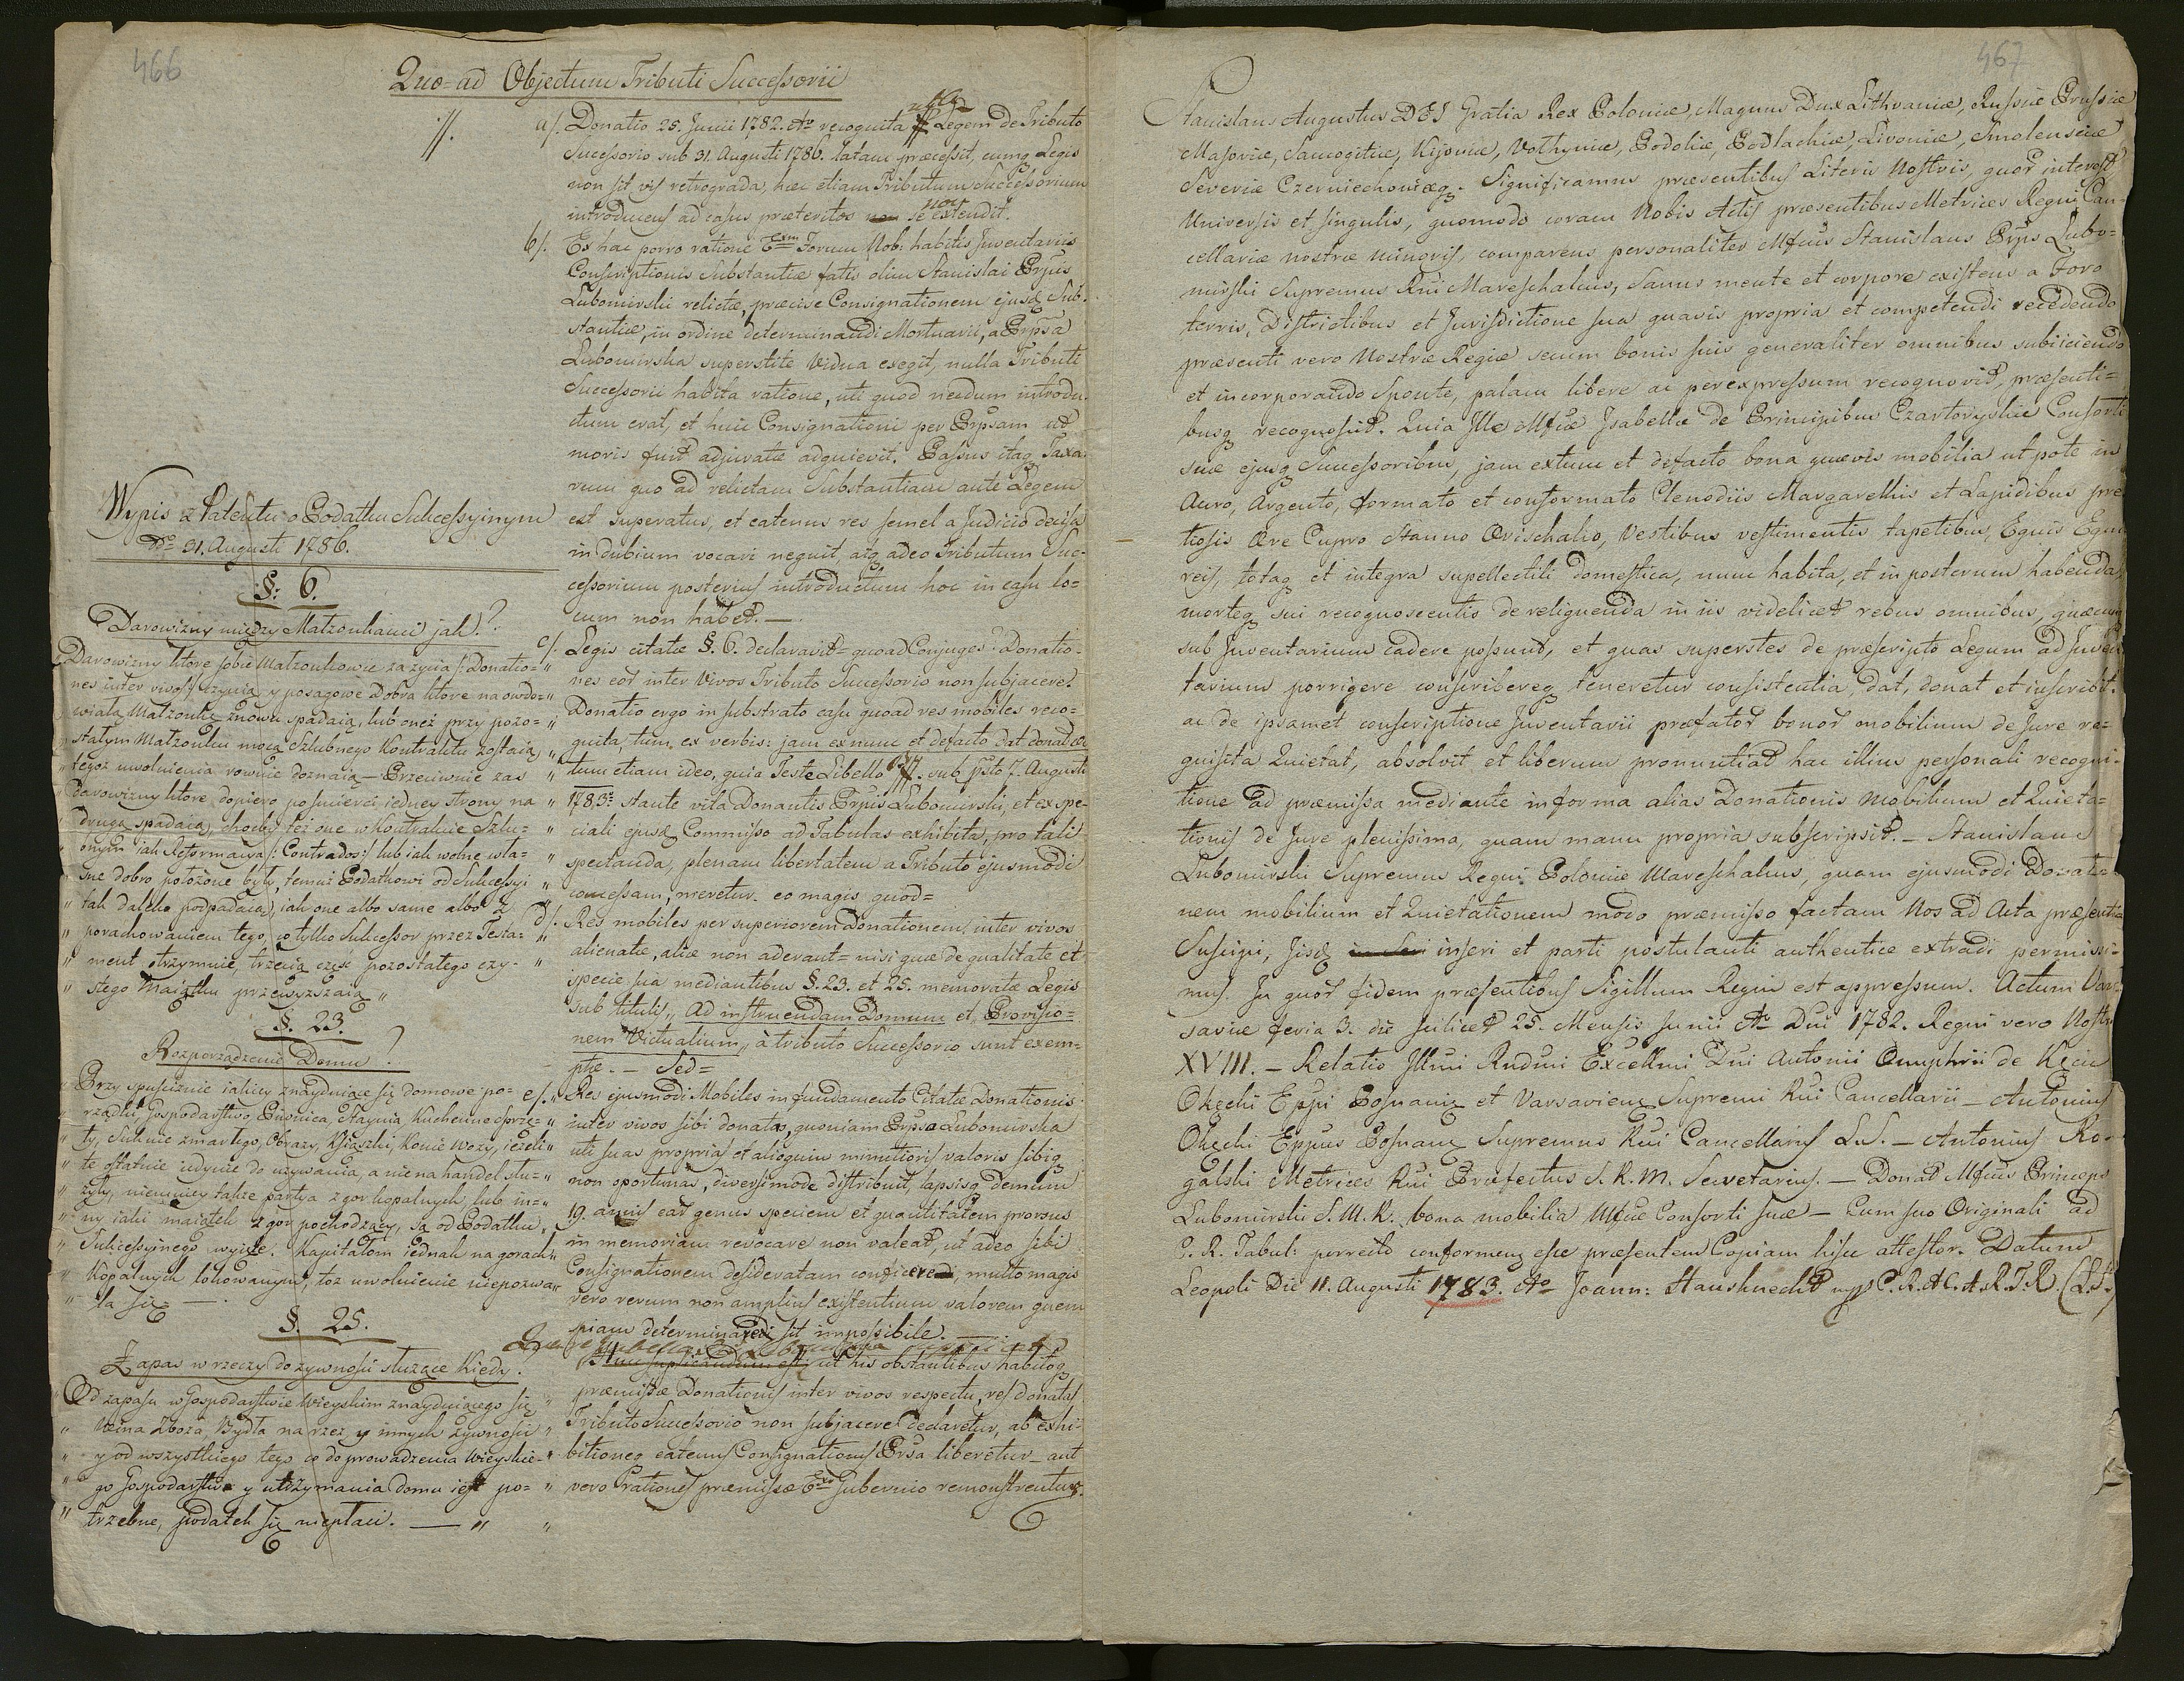 466
Quo-ad Objectum Tributi Successorii
a/. Donatio 25. Junii 1782. Ao recognita Legem de Tributo
Successorio sub 31. Augusti 1786. latam præcessit, cumq Legis
non sit vis retrograda, hæc etiam Tributum Successorium
introducens ad casus præteritos non se extendit.
b/. Ex hac porro ratione Exm Forum Nob: habitis Inventariis
Conscriptionis Substantiæ fatis olim Stanislai Prpis
Lubomirski relictæ, præcise Consignationem ejusd Sub-
stantiæ, in ordine determinandi Mortuarii, a Prpsa
Lubomirska superstite Vidua exegit, nulla Tributi
Successorii habita ratione, uti quod needum introdu-
ctum erat, et huic Consignationi per Prpsam ut
moris fuit adjuratæ adquievit. Passus itaq Taxa-
rum quo ad relictam Substantiam ante Legem
est superatus, et eatenus res semel a Judicio decisa
in dubium vocari nequit, atq adeo Tributum Suc-
cessorium posterius introductum hoc in casu lo-
cum non habet. —
c/. Legis citatæ §. 6. declaravit = quoad Conjuges: Donatio-
nes eor inter Vivos Tributo Successorio non subjacere.
Donatio ergo in substrato casu quoad res mobiles reco-
gnita, tum, ex verbis: jam ex nunc et defacto dat donat &c
tum etiam ideo, quia Teste Libello sub psto 7. Augusti
1783. stante vita Donantis Prpis Lubomirski, et ex spe-
ciali ejusd Commisso ad Tabulas exhibita, pro tali
spectanda, plenam libertatem a Tributo ejusmodi
concessam, meretur. eo magis quod =
d/. Res mobiles per superiorem Donationem inter vivos
alienatæ, aliæ non aderant = nisi quæ de qualitate et
specie sua mediantibus §. 23. et 25. memoratæ Legis
sub titulis „ Ad instruendam Domum et Provisio-
nem Victualium „ à tributo Successorio sunt exem-
ptæ. — Sed =
e/. Res ejusmodi Mobiles in fundamento Citatæ Donationis
inter vivos sibi donatas, quoniam Prpsa Lubomirska
uti suas proprias et alioquin minutioris valoris sibiq
non oportunas, diversimode distribuit, lapsisq Demum
19. annis ear genus speciem et quantitatem prorsus
in memoriam revocare non valeat, ut adeo sibi
Consignationem desideratam conficere, multo magis
vero rerum non amplius existentium valorem quem
piam determinare sit impossibile. —
supplicandum est, ut his obstantibus habitoq
præmissæ Donationis inter vivos respectu, res donatas
Tributo Successorio non subjacere declaretur, ab exhi-
bitioneq eatenus Consignationis Prsa liberetur — aut
vero rationes præmissæ Exo Gubernio remonstrentur.
Wypis z Patentu o Podatku Sukcessyinym
Do 31. Augusti 1786.
§: 6.
Darowizny między Małżonkami jak?
Darowizny które sobie Małżonkowie za życia /: Donatio-
nes inter vivos :/ czynią y posagowe Dobra które na owdo-
wiałą Małżonkę znowu spadaią, lub oneż przy pozo-
stałym Małżonku mocą Szlubnego Kontraktu zostaią
tegoż uwolnienia rownie doznaią — Przeciwnie zas
Darowizny które dopiero po śmierci iedney strony na
drugą spadaią, choćby też one w Kontrakcie Szlu-
bnym iak Reformacya /: Contrados :/ lub iak wolne wła-
sne dobro położone były, temuż Podatkowi od Sukcessyi
tak daleko podpadaią, iak one albo same albo z
porachowaniem tego, co tylko Sukcessor przez Testa-
ment otrzymuie, trzecią częsć pozostałego czy-
stego Maiątku przewyzszaią „
§. 23.
Rozporządzenie Domu?
Przy spusciznie iakiey znayduiące się domowe po-
rządki, Gospodarstwo Piwnica, Staynia Kuchenne sprzę-
ty, Suknie zmarłego, Obrazy, Książki, Konie Wozy, ieżeli
te ostatnie iedynie do używania, a nie na handel słu-
żyły, niemniey także partya z gor kopalnych lub in-
ny iaki maiątek z gor pochodzący, są od Podatku
Sukcessyinego wyięte. Kapitałom iednak na gorach
Kopalnych lokowanym, toż uwolnienie niepozwa-
la się —
§. 25.
Zapas w rzeczy do żywności służące Kiedy?
Od zapasu w Gospodarstwie Wieyskim znayduiącego się
Wina Zboża, Bydła na rzeź y innych żywności
y od wszystkiego tego co do prowadzenia Wieyskie-
go Gospodarstwa y utrzymania domu iest po-
trzebne, podatek się niepłaci. —
467
Stanislaus Augustus DEI Gratia Rex Poloniæ, Magnus Dux Lithvaniæ, Russiæ Prussiæ
Masoviæ, Samogitiæ, Kijoviæ, Volhyniæ, Podoliæ, Podlachiæ, Livoniæ, Smolensciæ
Severiæ Czerniechoviæq. Significamus præsentibus Literis Nostris, quor interest
Universis et singulis, quomodo coram Nobis Actis præsentibus Metrices Regni Can-
cellariæ nostræ minoris, comparens personaliter Mfcus Stanislaus Prps Lubo-
mirski Supremus Rni Mareschalcus, Sanus mente et corpore existens a Foro
terris, Districtibus et Jurisdictione sua quavis propria et competendi recedendo
præsenti vero Nostræ Regiæ secum bonis suis generaliter omnibus subiiciendo
et incorporando Sponte, palam libere ac per expressum recognovit, præsenti-
busq recognoscit. Quia Ille Mfcæ Isabellæ de Principibus Czartoryskie Consorti
suæ ejusq Successoribus, jam extunc et defacto bona quævis mobilia ut pote in
Auro, Argento, formato et conformato Clenodiis Margarellis et Lapidibus pre
tiosis Ære Cupro Stanno Orischalco, Vestibus vestimentis tapetibus, Equis Equa
reis, totaq et integra supellectili Domestica, nunc habita, et in posterum habenda,
morteq sui recognoscentis derelinquenda in iis videlicet rebus omnibus, quæcunq
sub Inventarium cadere possunt, et quas superstes de præscripto Legum ad Inven
tarium porrigere conscribereq teneretur consistentia, dat, donat et inscribit.
ac de ipsamet conscriptione Inventarii præfator bonor mobilium de Jure re-
quisita Quietat, absolvit et liberum pronuntiat hac illius personali recogni-
tione ad præmissa mediante in forma alias Donationis Mobilium et Quieta-
tionis de Jure plenissima, quam manu propria subscripsit. — Stanislaus
Lubomirski Supremus Regni Poloniæ Mareschalcus, quam ejusmodi Donatio-
nem mobilium et Quietationem modo præmisso factam Nos ad Acta præsentia
Suscipi, Iisd inseri et parti postulanti authentice extradi permisi-
mus. In quor fidem præsentibus Sigillum Regni est appressum. Actum Var-
saviæ feria 3. die scilicet 25. Mensis Junii Ao Dni 1782. Regni vero Nostri
XVIII. — Relatio Illmi Rndmi Excellmi Dni Antonii Onuphrii de Kęcie
Okęcki Eppi Posnaniæ et Varsavien Supremi Rni Cancellarii — Antonius
Okęcki Eppus Posnan Supremus Rni Cancellarius L.S. — Antonius Ro-
galski Metrices Rni Præfectus S. R. M. Secretarius. — Donat Mfcus Princeps
Lubomirski S. M. R. bona mobilia Mfcæ Consorti suæ — Cum suo Originali ad
C. R. Tabul: porrecto conformem esse præsentem Copiam hisce attestor. Datum
Leopoli Die 11. Augusti 1783. Ao Joann: Hausknecht mpp C. R. (L.S.)